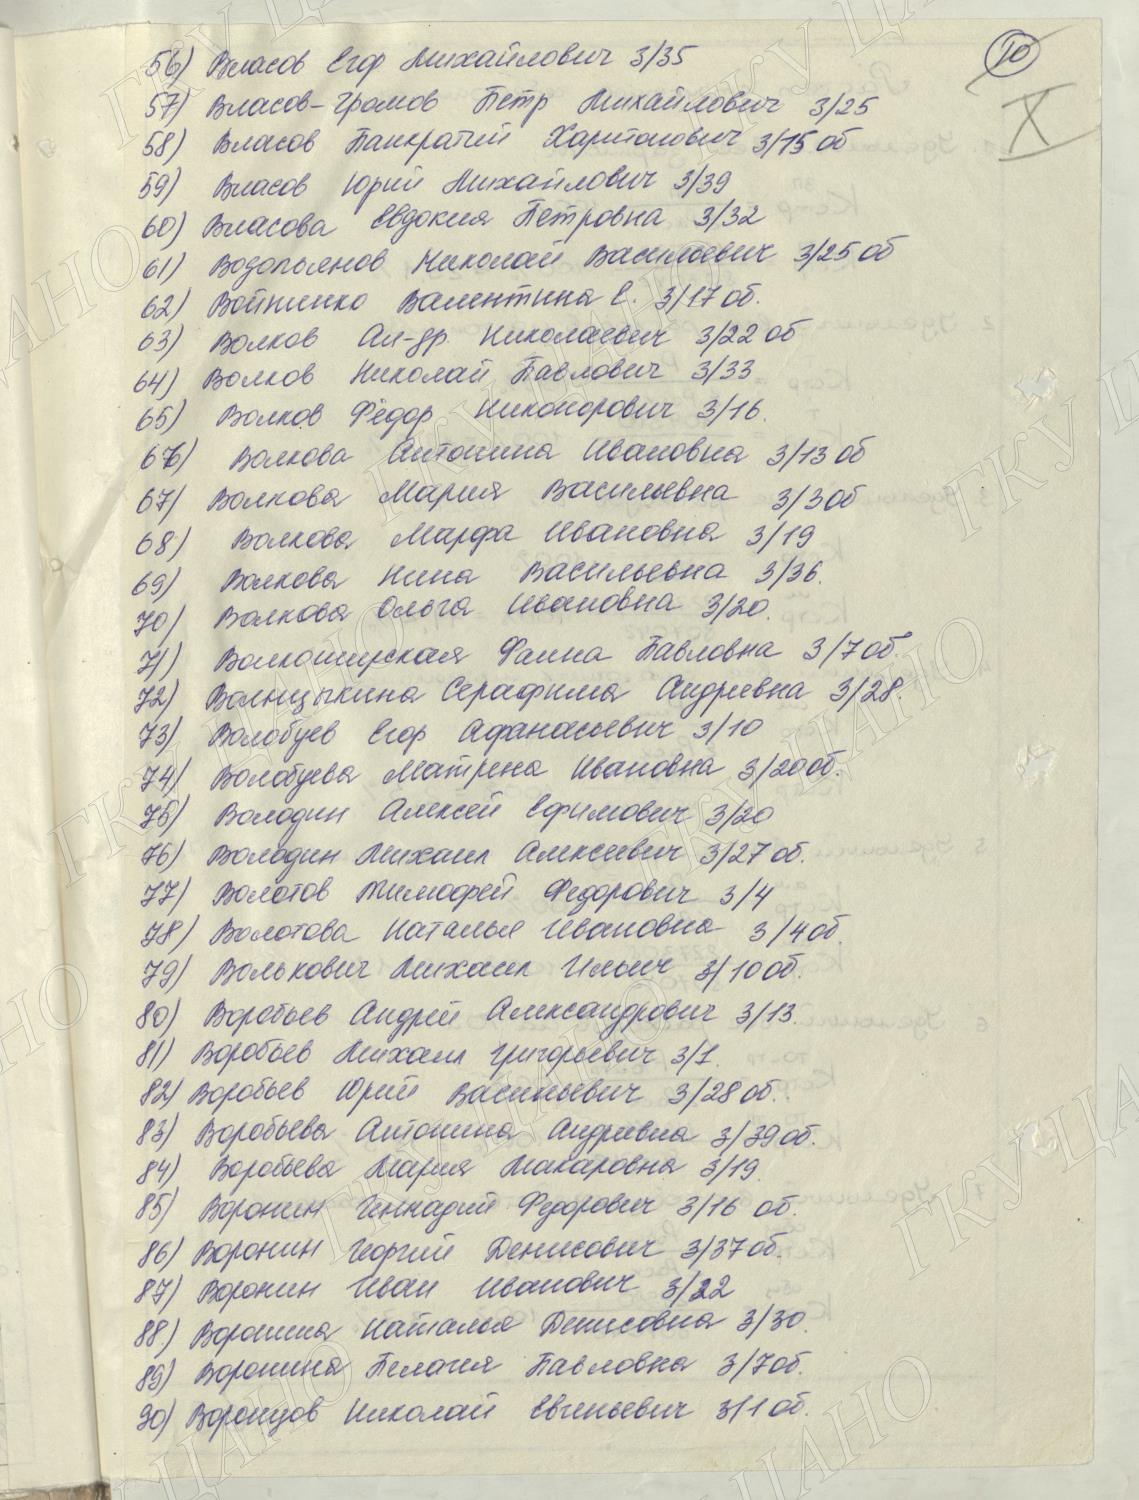 10
X
56) Власов Егор Михайлович 3/35
57) Власов-Громов Петр Михайлович 3/25
58) Власов Панкратий Харитонович 3/15 об
59) Власов Юрий Михайлович 3/39
60) Власова Евдокия Петровна 3/32
61) Водопьянов Николай Васильевич 3/25 об
62) Войтленко Валентина Е. 3/17 об.
63) Волков Ал-др. Николаевич 3/22 об
64) Волков Николай Павлович 3/33
65) Волков Фёдор Никонорович 3/16.
66) Волкова Антонина Ивановна 3/13 об
67) Волкова Мария Васильевна 3/3об
68) Волкова Марфа Ивановна 3/19
69) Волкова Нина Васильевна 3/36.
70) Волкова Ольга Ивановна 3/20.
71) Фаина Павловна 3/7 об.
72) Серафима Андревна 3/28.
73) Волобуев Егор Афанасьевич 3/10
74) Волобуева Матрена Ивановна 3/20 об.
75) Володин Алексей Ефимович 3/20
76) Володин Михаил Алексеевич 3/27 об.
77) Волотов Тимофей Федорович 3/4
78) Волотова Наталья Ивановна 3/4 об.
79) Волькович Михаил Ильич 3/10 об.
80) Воробьев Андрей Александрович 3/13.
81) Воробьев Михаил Григорьевич 3/1.
82) Воробьев Юрий Васильевич 3/28 об.
83) Воробьева Антонина Андревна 3/39 об.
84) Воробьева Мария Макаровна 3/19.
85) Воронин Геннадий Федорович 3/16 об.
86) Воронин Георгий Денисович 3/37 об.
87) Воронин Иван Иванович 3/22
88.) Воронина Наталья Денисовна 3/30.
89) Воронина Пелагея Павловна 3/7 об.
90) Воронцов Николай Евгеньевич 3/1 об.
ГКУ ЦАНО